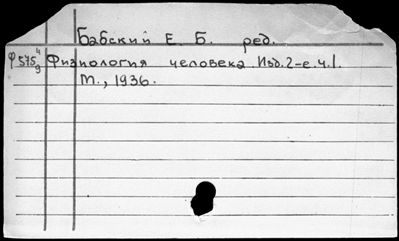 Бабский Е. Б. ред.
Ф575 4/9 Физиология человека Изд. 2-е. ч. I.
М., 1936.